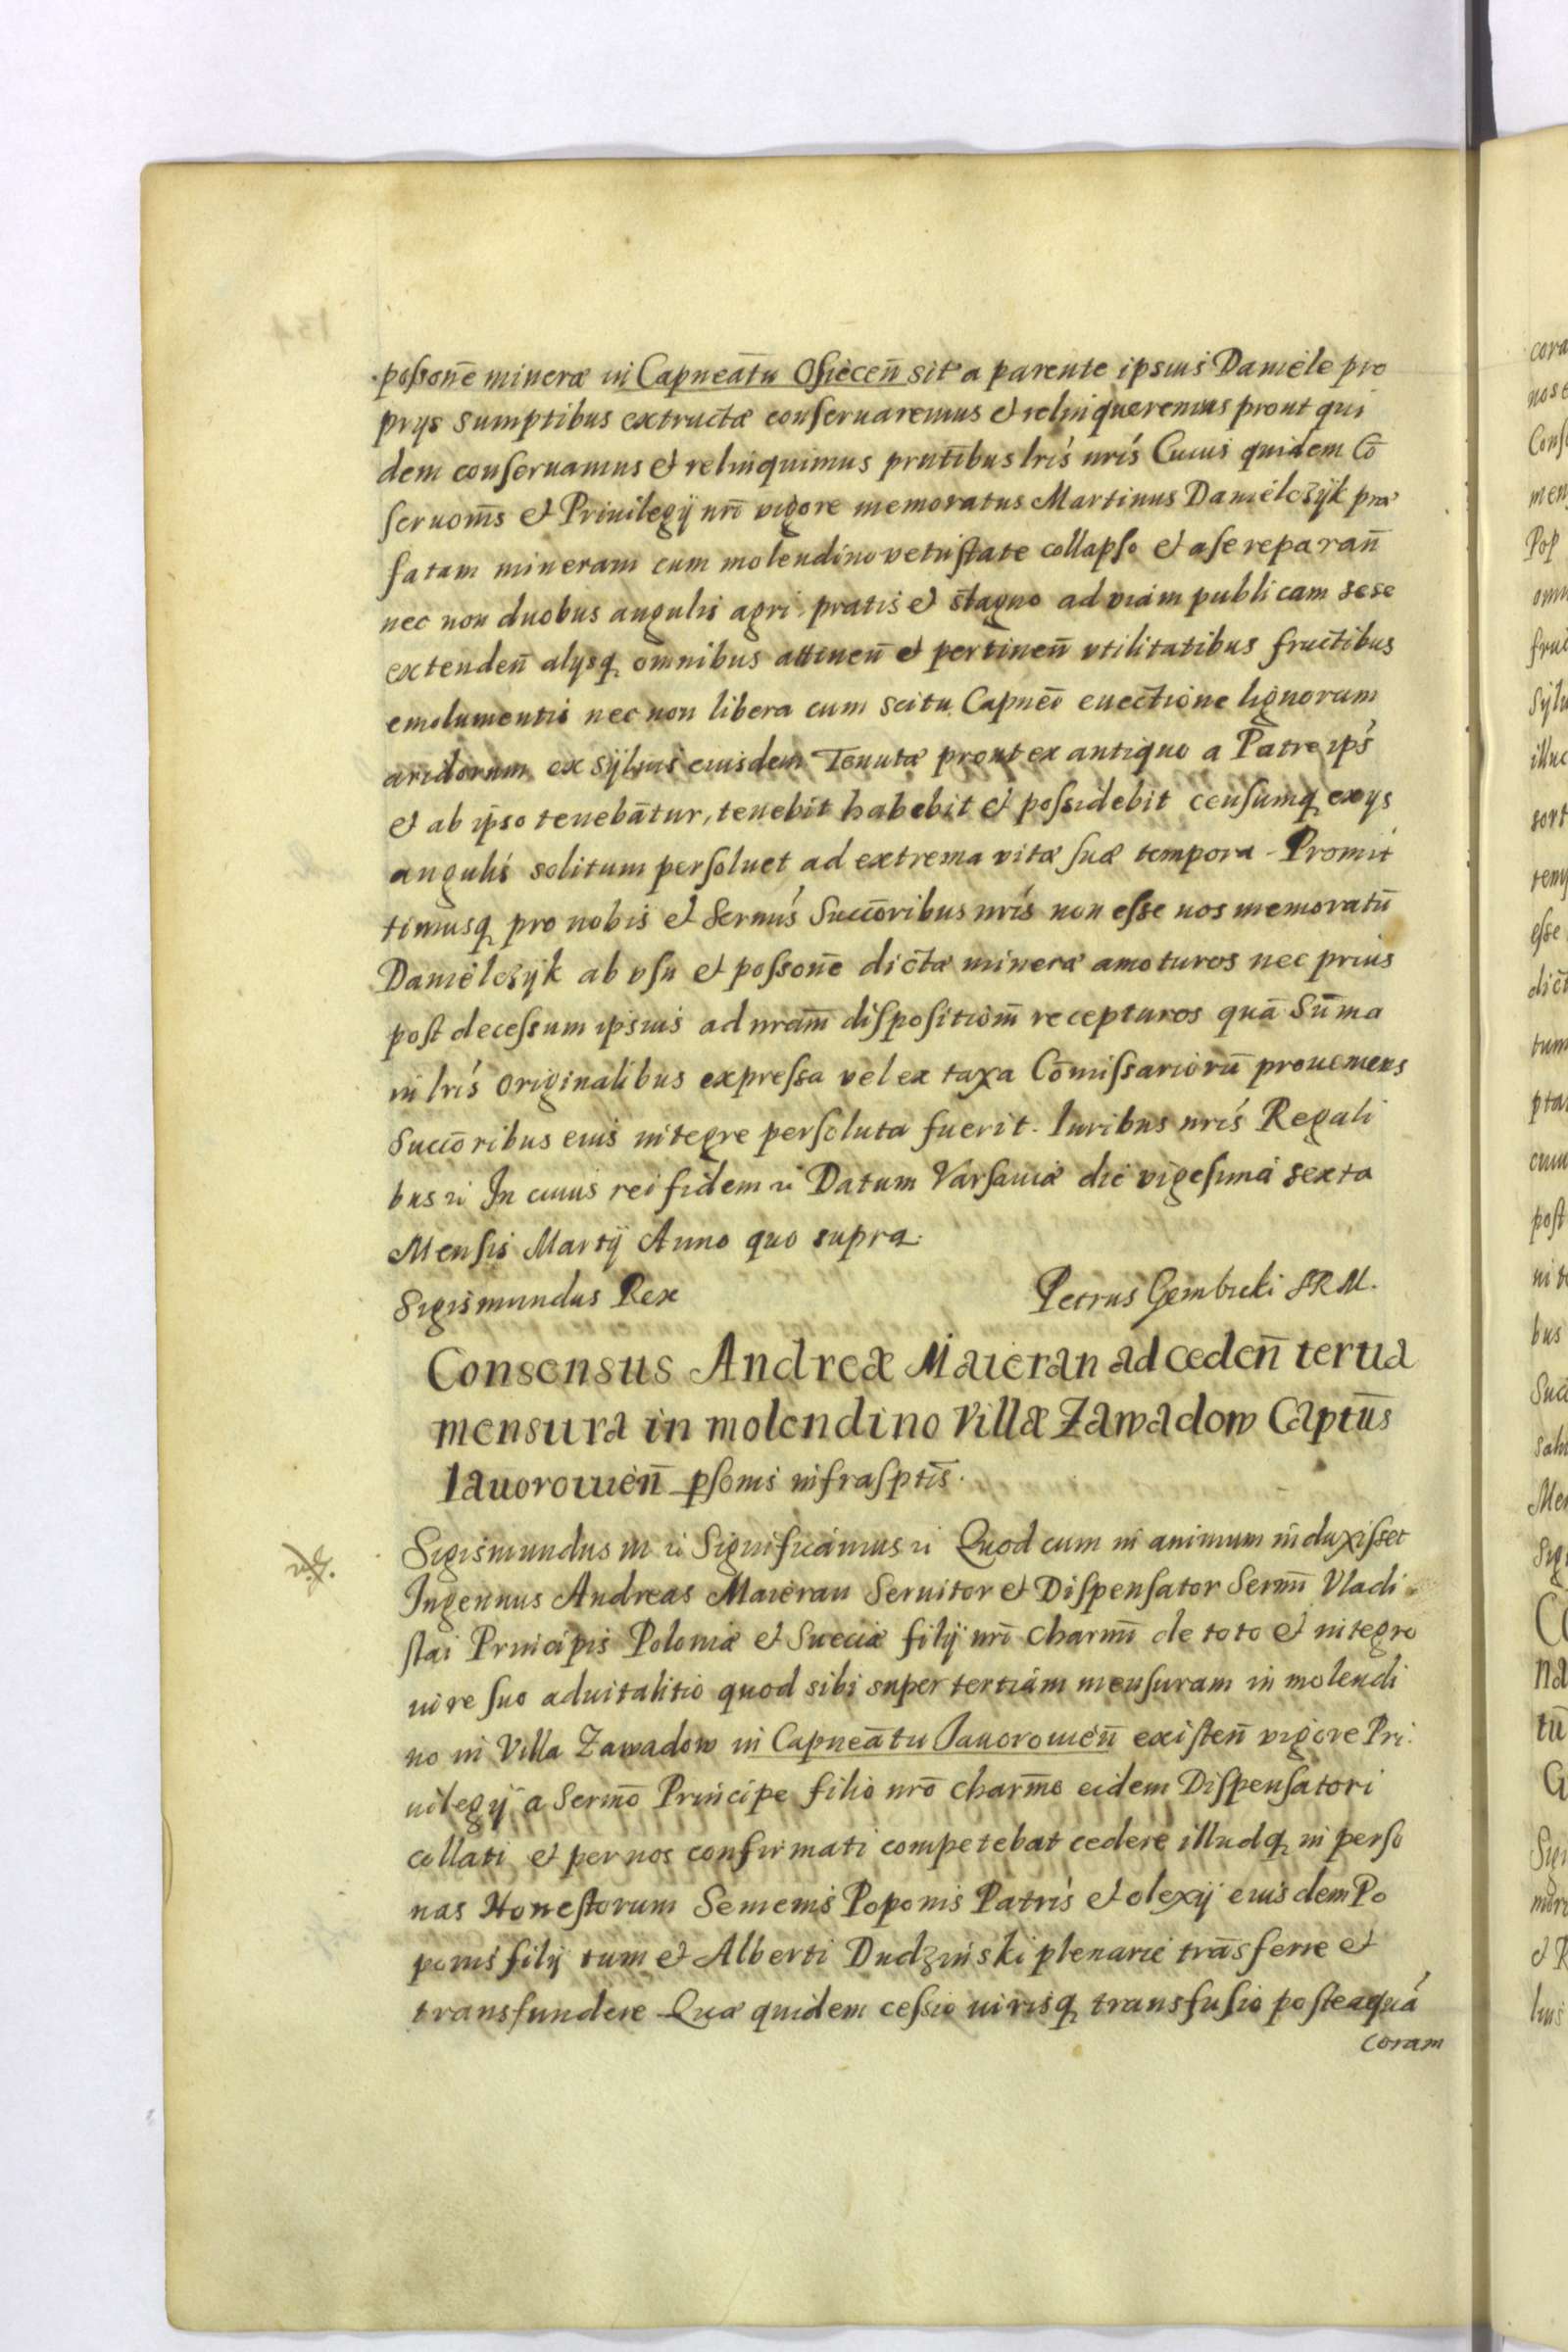 possone mineræ in Capneatu Osiecen sitæ a parente ipsius Daniele pro
prys sumptibus extructæ conseruaremus et relinqueremus prout qui
dem conseruamus et relinquimus pruntibus lris nris Cuius quidem Cō
seruonis et Priuilegij nri vigore memoratus Martinus Danielczÿk præ
fatam mineram cum molendino vetustate collapso et a se reparan̄
nec non duobus angulis agri, pratis et stagno ad viam publicam sese
extenden̄ alysq omnibus attinen̄ et pertinen̄ vtilitatibus fructibus
emolumentis nec non libera cum scitu Capnei euectione lignorum
aridorum ex syluis eiusdem Tenutæ prout ex antiquo a Patre ips
et ab ipso tenebātur, tenebit habebit et possidebit censumq ex ys
angulis solitum persoluet ad extrema vitæ suæ tempora - Promit
timusq pro nobis et Sermis Succōribus nris non esse nos memoratū
Danielczÿk ab vsu et possone dictæ mineræ amoturos nec prius
post decessum ipsius ad nram̄ dispositiom̄ recepturos quā Sum̄a
in lris originalibus expressa vel ex taxa Com̄issariorū proueniens
Succōribus eius integre persoluta fuerit. Iuribus nris Regali
bus ꝛc In cuius rei fidem ꝛc Datum Varsauiæ die vigesima sexta
Mensis Martÿ Anno quo supra.
Sigismundus Rex
Petrus Gembicki SRM.
Consensus Andreæ Maieran ad ceden̄ tertia
mensura in molendino Villæ Zawadow Captūs
Iauorouien̄ psonis infrasptis.
Sigismundus III ꝛc Significamus ꝛc Quod cum in animum induxisset
Ingenuus Andreas Maieran Seruitor et Dispensator Sermi Vladi
slai Principis Poloniæ et Sueciæ filij nri charmi de toto et integro
iure suo aduitalitio quod sibi super tertiam mensuram in molendi
no in Villa Zawadow in Capneātu Iauorouien̄ existen̄ vigore Pri
uilegÿ a Sermo Principe filio nro charmo eidem Dispensatori
collati et per nos confirmati competebat cedere illudq in perso
nas Honestorum Semenis Poponis Patris et olexij eiusdem Po
ponis filij tum et Alberti Dudzinski plenarie trāsferre et
transfundere Quæ quidem cessio iurisq transfusio posteaquā
coram